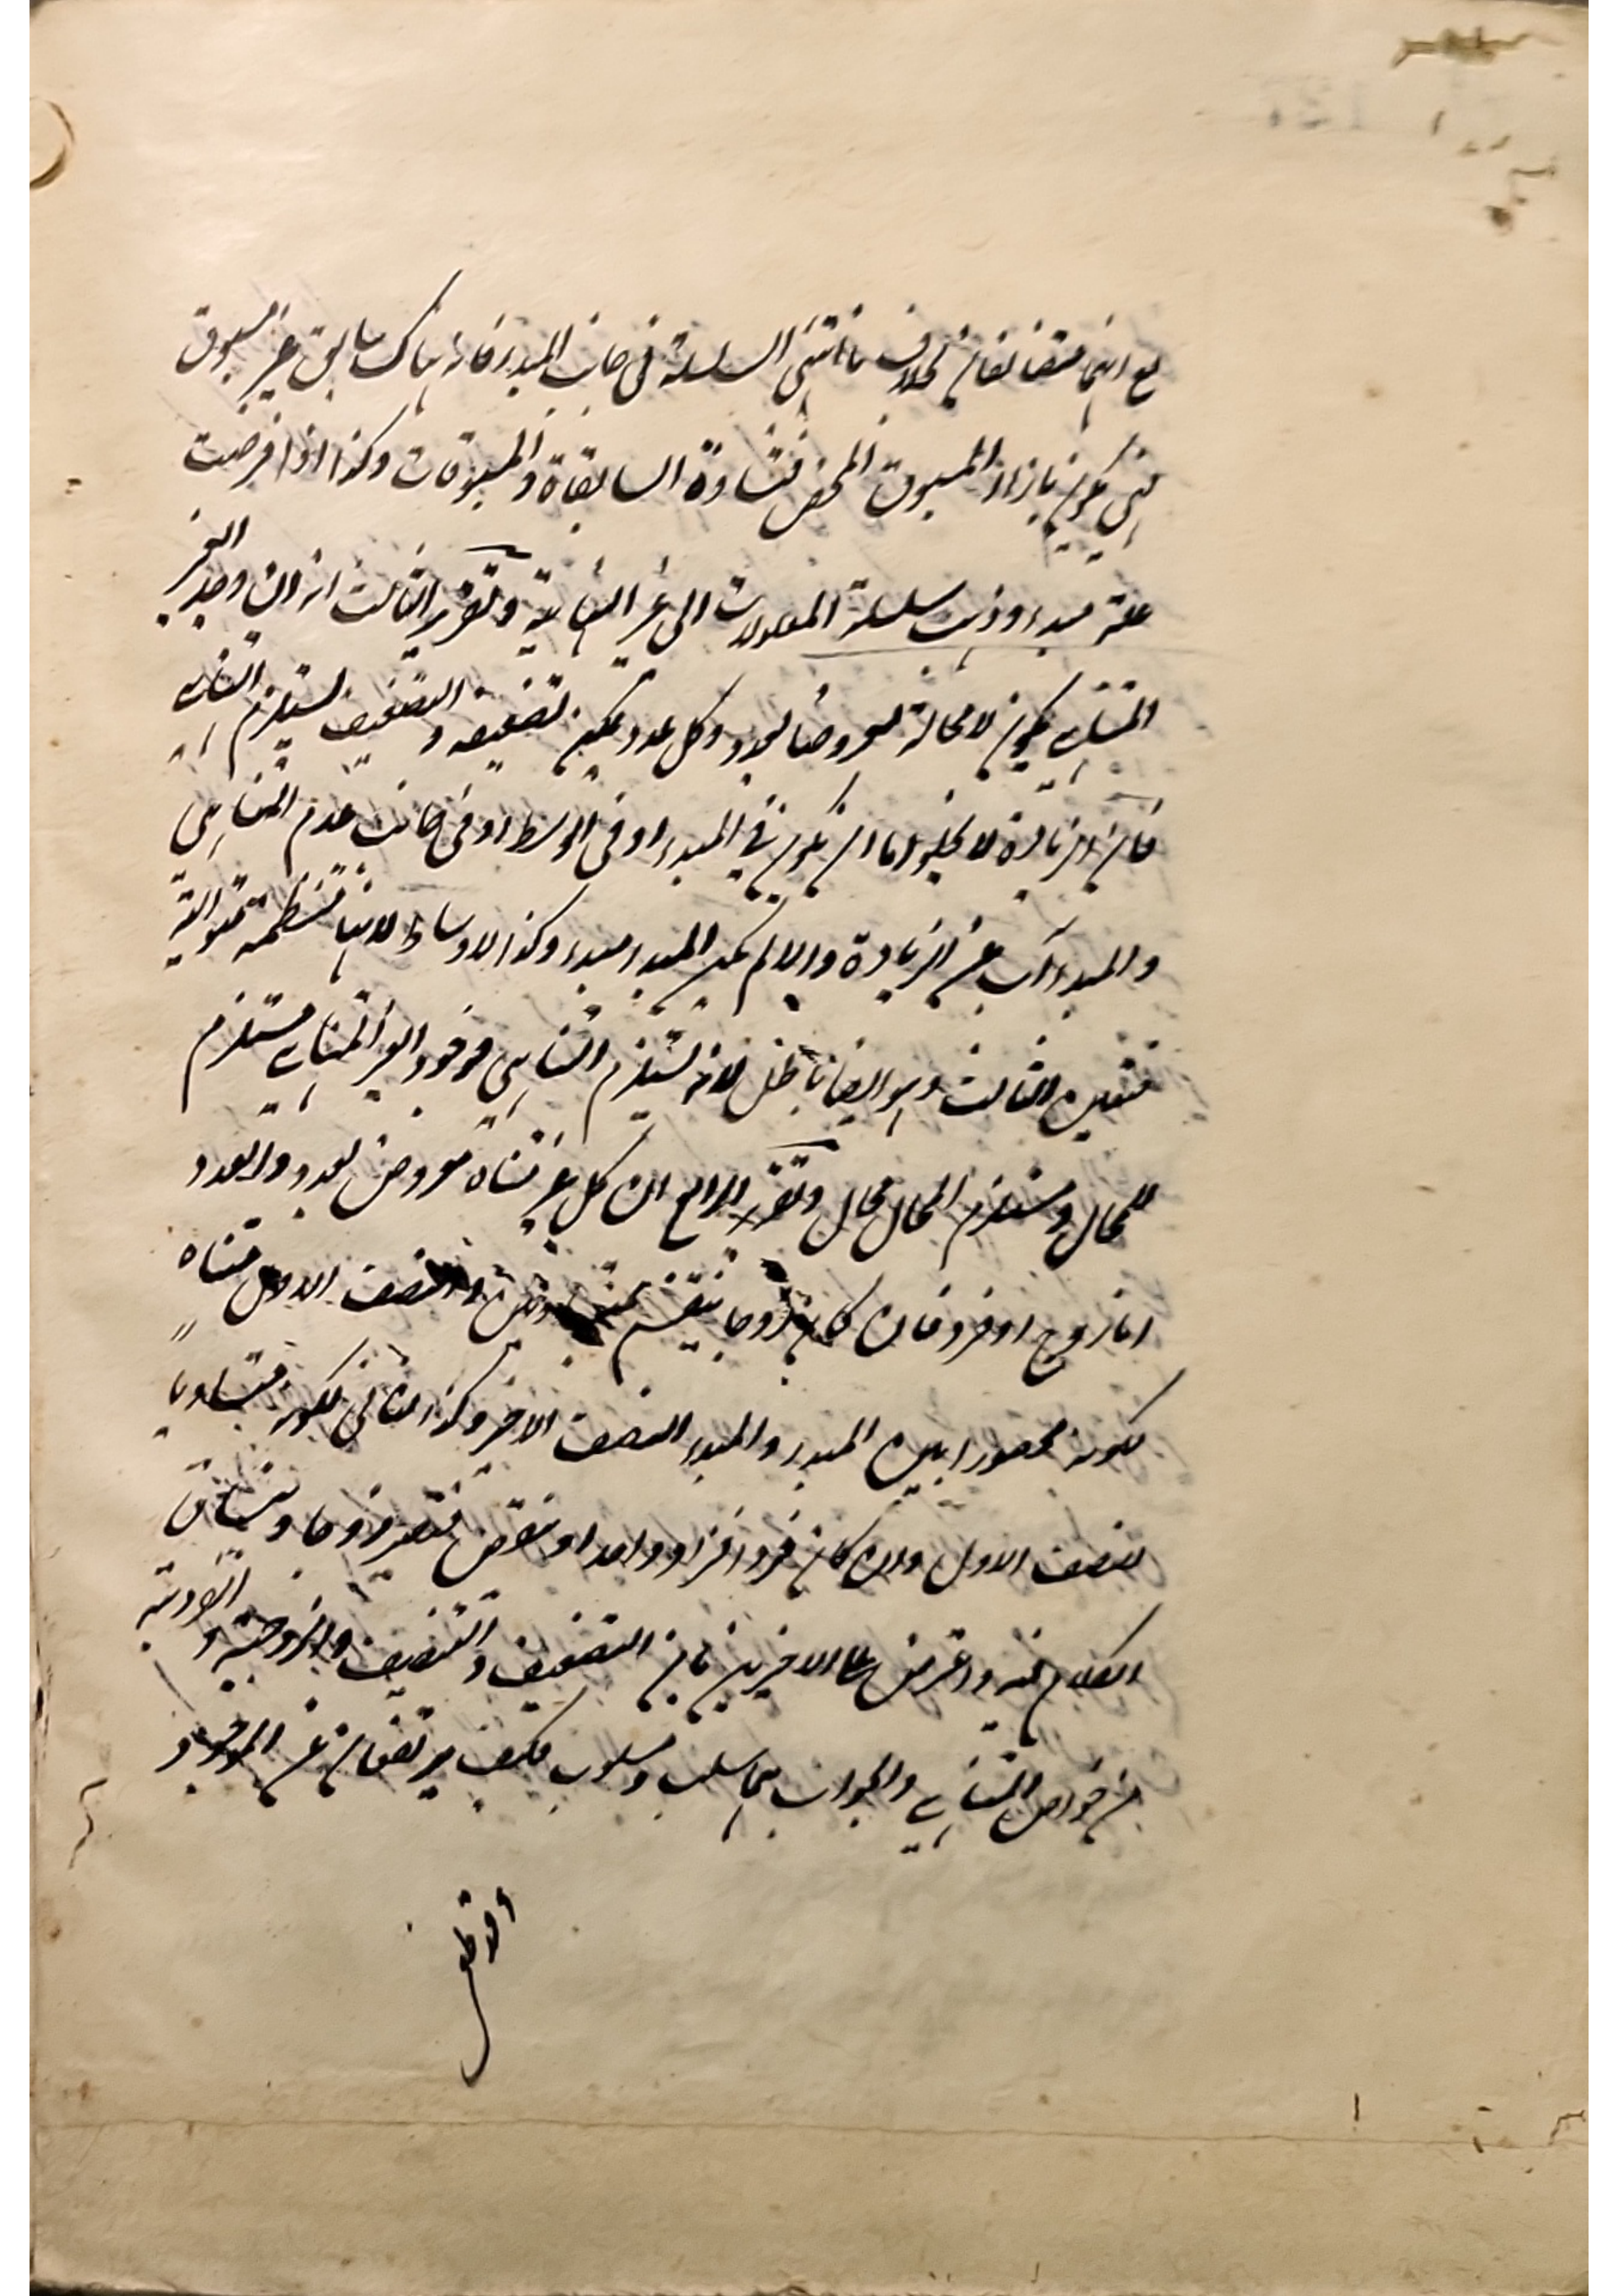 مع انهما متضائفان بخلاف ما انتهى السلسلة فى جانب المبدء فانه هناك سابق غير مسبوق
فهى يكون بازاء المسبوق المحض فتساوة السابقاة والمسبوقات وكذا اذا فرضت
علة مبدء وذهبت سلسلة المعلولات الى غير النهاية وتقرير الثالث انه ان وجد الغير
المتناهي يكون لا محالة معروضا لعدد وكل عدد يمكن تضعيفه والتضعيف يستلزم التناهي
فان الزيادة لا يخلو اما ان يكون في المبدء او فى الوسط او فى جانب عدم التناهي
والمبدء آب عن الزيادة والا لم يكن المبدء مبدء وكذا الاوساط لانها منتظمة متوالية
فتعين الثالث وهو ايضا باطل لانه يستلزم التناهي فوجود الغير المتناهي مستلزم
للمحال ومستلزم المحال محال وتقرير الرابع ان كل غير متناه معروض لعدد والعدد
اما زوج او فرد فان كان زوجا ينقسم والنصف الاول متناه
لكونه محصورا بين المبدء والمبدء النصف الاخر وكذا الثانى لكونه متساويا
لنصف الاول وان كان فردا فزاد واحدا او ينقص فتصير زوجا وينساق
الكلام فيه واعترض على الاخيرين بان التضعيف والتنصيف والزوجية والفردية
من خواص المتناهي والجواب بينهما سلب وسلوب فكيف يرتفعان عن الموجود